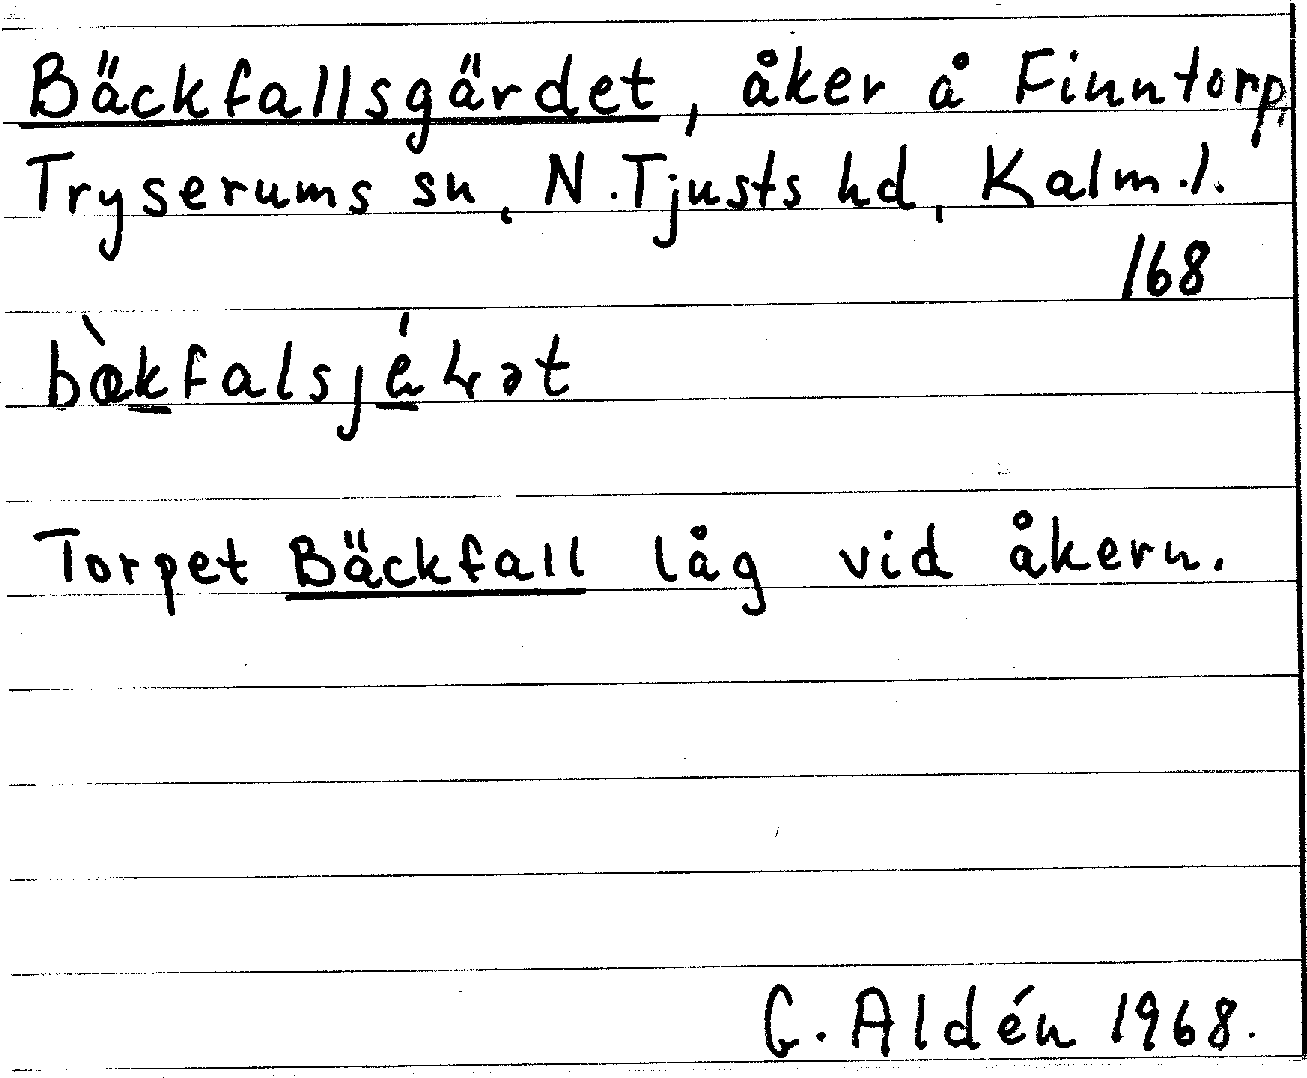 Bäckfallsgärdet, åker å Finntorp,
Tryserums sn, N. Tjusts hd, Kalm. l.
168
Torpet Bäckfall låg vid åkern.
G. Aldén 1968.